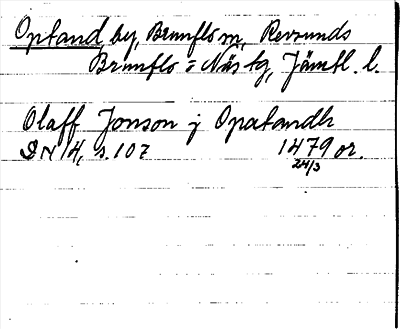 Optand, by, Brunflo sn, Revsunds
Brunflo o Näs tg, Jämtl. l.
Olaff Jonson j Opatandh
DN 14, s. 107 1479 or.
24/3